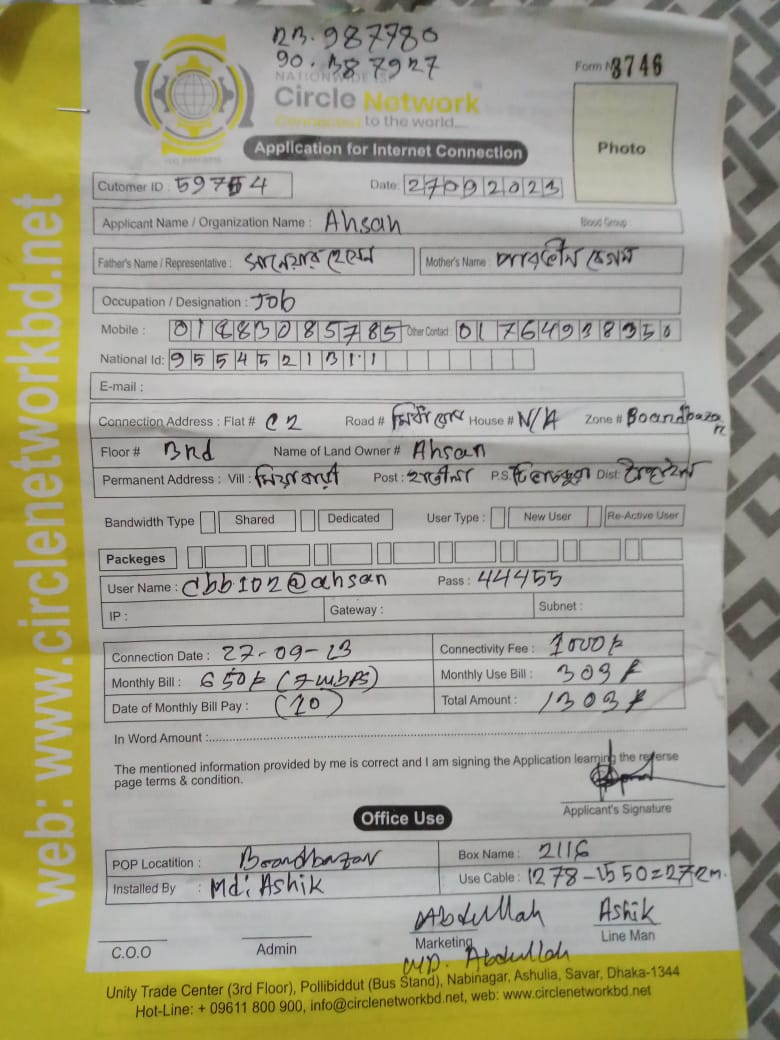 23.987780
90.387927
NATIONWIDE ISP
Circle Network
Connected to the world...
Form No 3746
Application for Internet Connection
Photo
Cutomer ID : 59754 Date: 27092023
Applicant Name / Organization Name : Ahsan Blood Group :
Father's Name / Representative : Mother's Name পারভীন বেগম
Occupation / Designation : Job
Mobile : 01883085785 Other Contact
National Id: 9554521311
E-mail :
Connection Address : Flat # C2 Road # House # N/A Zone # Boardbazar
Floor # 3rd Name of Land Owner # Ahsan
Permanent Address : Vill : মিয়াবাড়ী Post : P.S. Dist: টাঙ্গাইল
Bandwidth Type Shared Dedicated User Type : New User Re-Active User
Packeges
User Name : cbb102@ahsan Pass : 44455
IP : Gateway : Subnet :
Connection Date : 27-09-23 Connectivity Fee : 1000/-
Monthly Bill : 650/- (7 mbps) Monthly Use Bill : 303/-
Date of Monthly Bill Pay : (10) Total Amount : 1303/-
In Word Amount :
The mentioned information provided by me is correct and I am signing the Application learning the reverse
page terms & condition.
Applicant's Signature
Office Use
POP Locatition : Boardbazar Box Name : 2116
Installed By : Md: Ashik Use Cable : 1278-1550=272m.
Abdullah Ashik
C.O.O Admin Marketing Line Man
MD. Abdullah
Unity Trade Center (3rd Floor), Pollibiddut (Bus Stand), Nabinagar, Ashulia, Savar, Dhaka-1344
Hot-Line: + 09611 800 900, info@circlenetworkbd.net, web: www.circlenetworkbd.net
web: www.circlenetworkbd.net